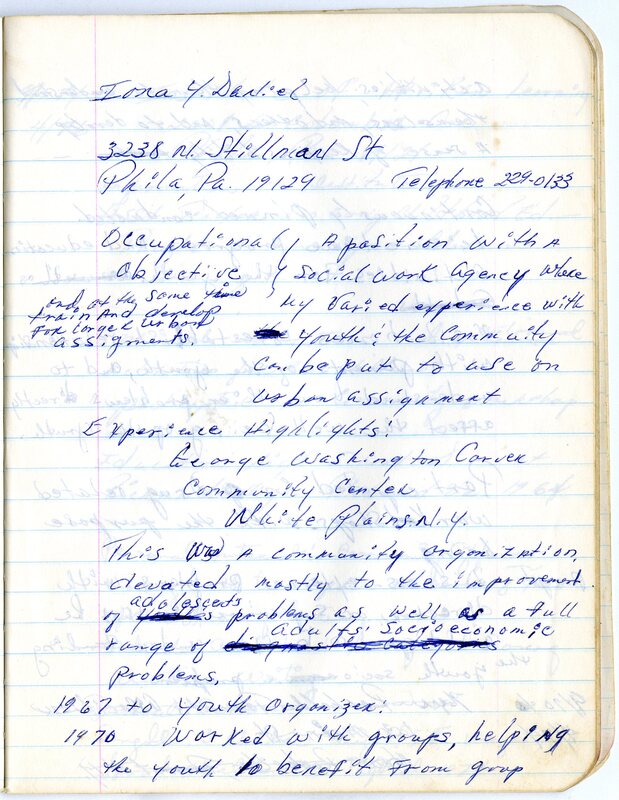 Iona Y. Daniel
3238 N. Stillman St
Phila, Pa. 19129 Telephone 229-0133
Occupational, A position with a
Objective, Social work Agency where
and at the same time
train and develop
for larger urban
assigments.
my varied experience with
Youth & the Community
can be put to use on
Urban assignment
Experience Highlights:
George Washington Carver
Community Center
White Plains. N.Y.
This was A community organiztion,
devated mostly to the improvement
of adolescents problems as well as a full
range of adults' socioeconomic
problems,
1967 to Youth Organizer:
1970 Worked with groups, helping
the youth to benefit from group